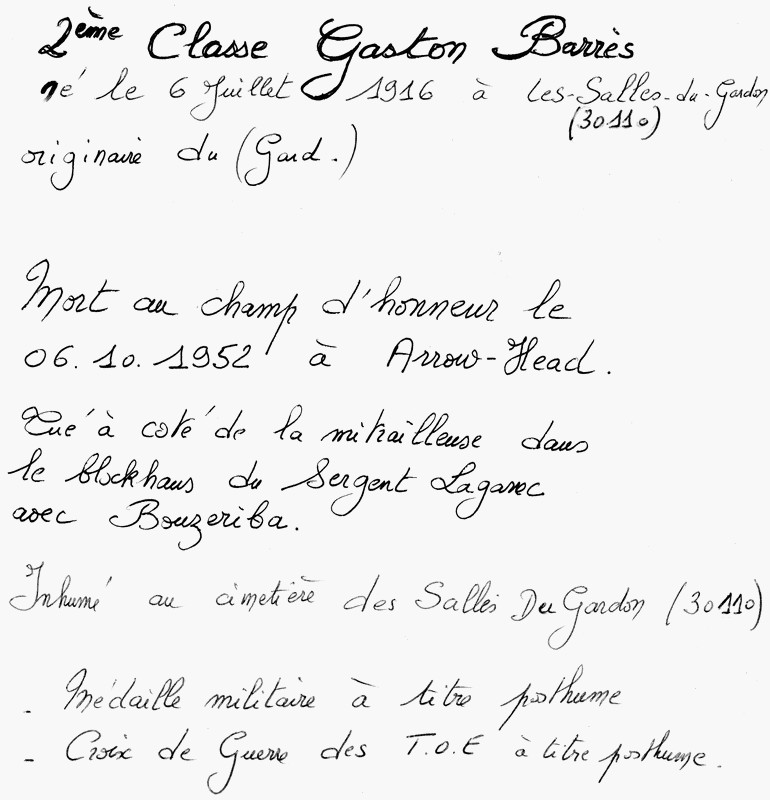 2ème Classe Gaston Barrès
né le 6 Juillet 1916 à Les-Salles-du-Gardon
(30110)
originaire du (Gard.)
Mort au champ d'honneur le
06.10.1952 à Arrow-Head.
Tué à coté de la mitrailleuse dans
le blockhaus du Sergent Lagarec
avec Bouzeriba.
Inhumé au cimetière des Salles Du Gardon (30110)
- Médaille militaire à titre posthume
- Croix de Guerre des T.O.E à titre posthume.